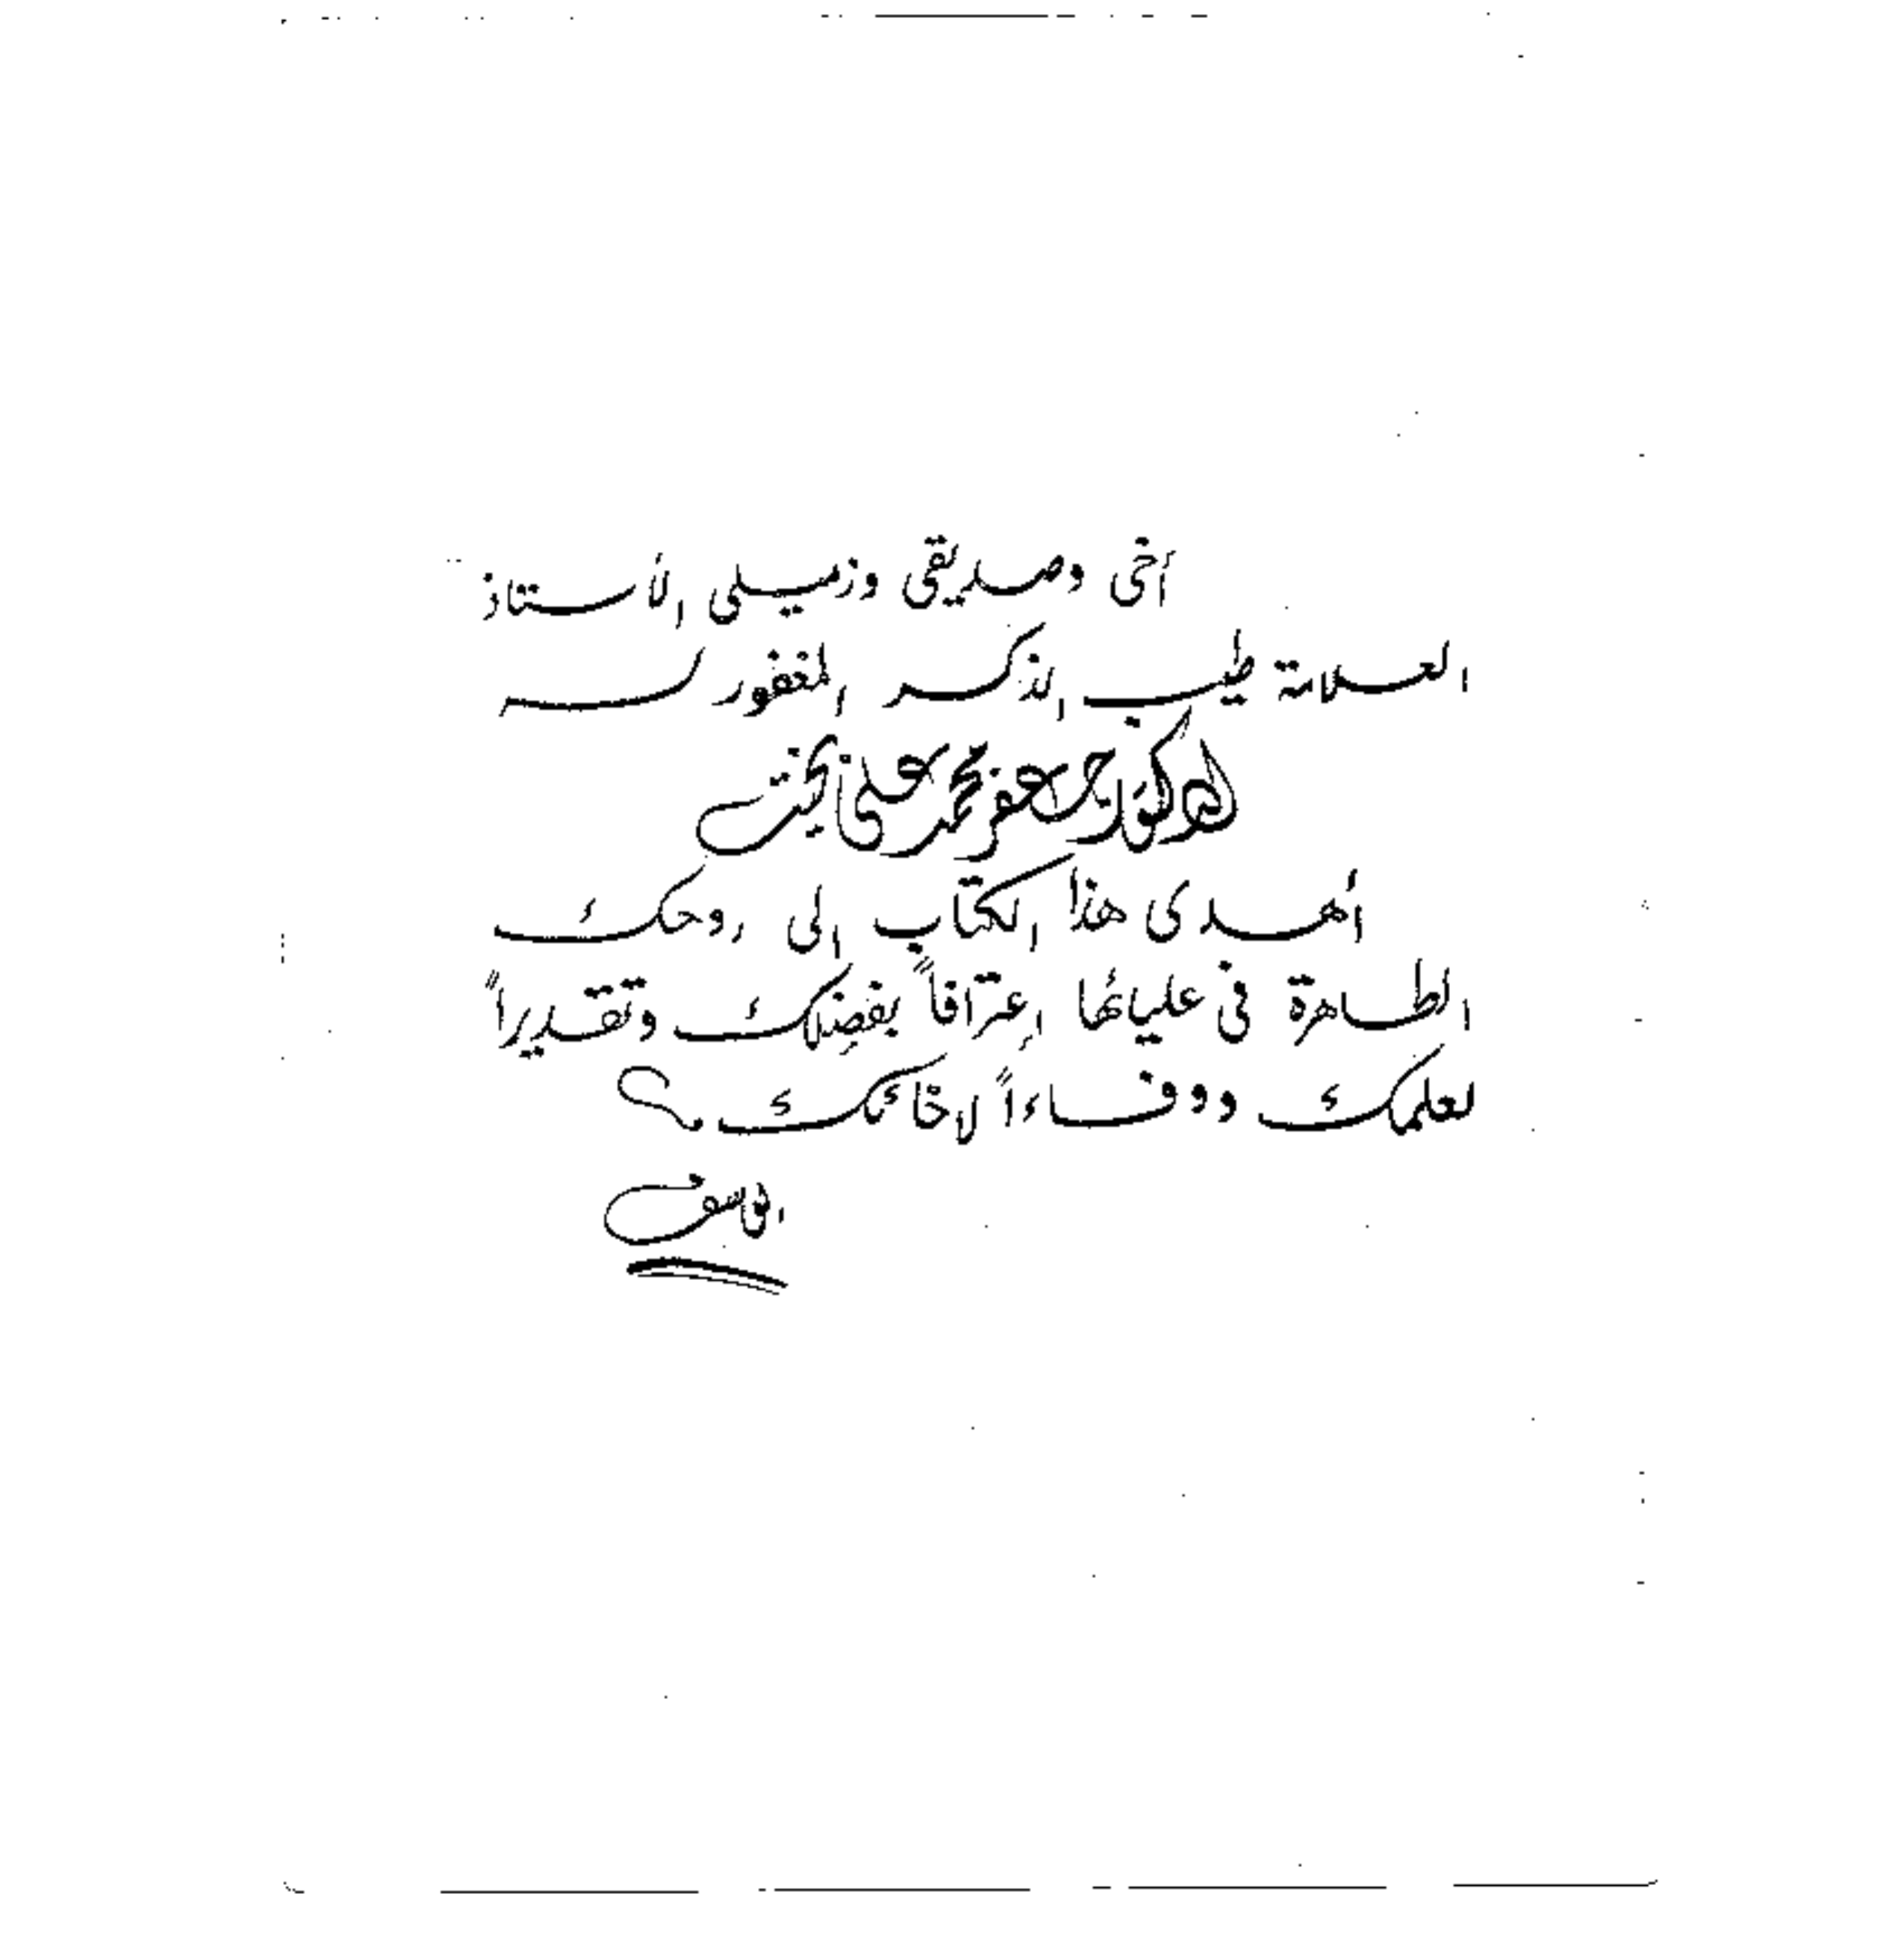 أخى وصديقى وزميلى الأستاذ
العلامة طيب الذكر المغفور له
الدكتور جعفر محمد على بخيت
أهدى هذا الكتاب الى روحك
الطاهرة فى عليائها اِعترافاً بفضِلك وتقديراً
لعلمك ووفاءاً لإخائك